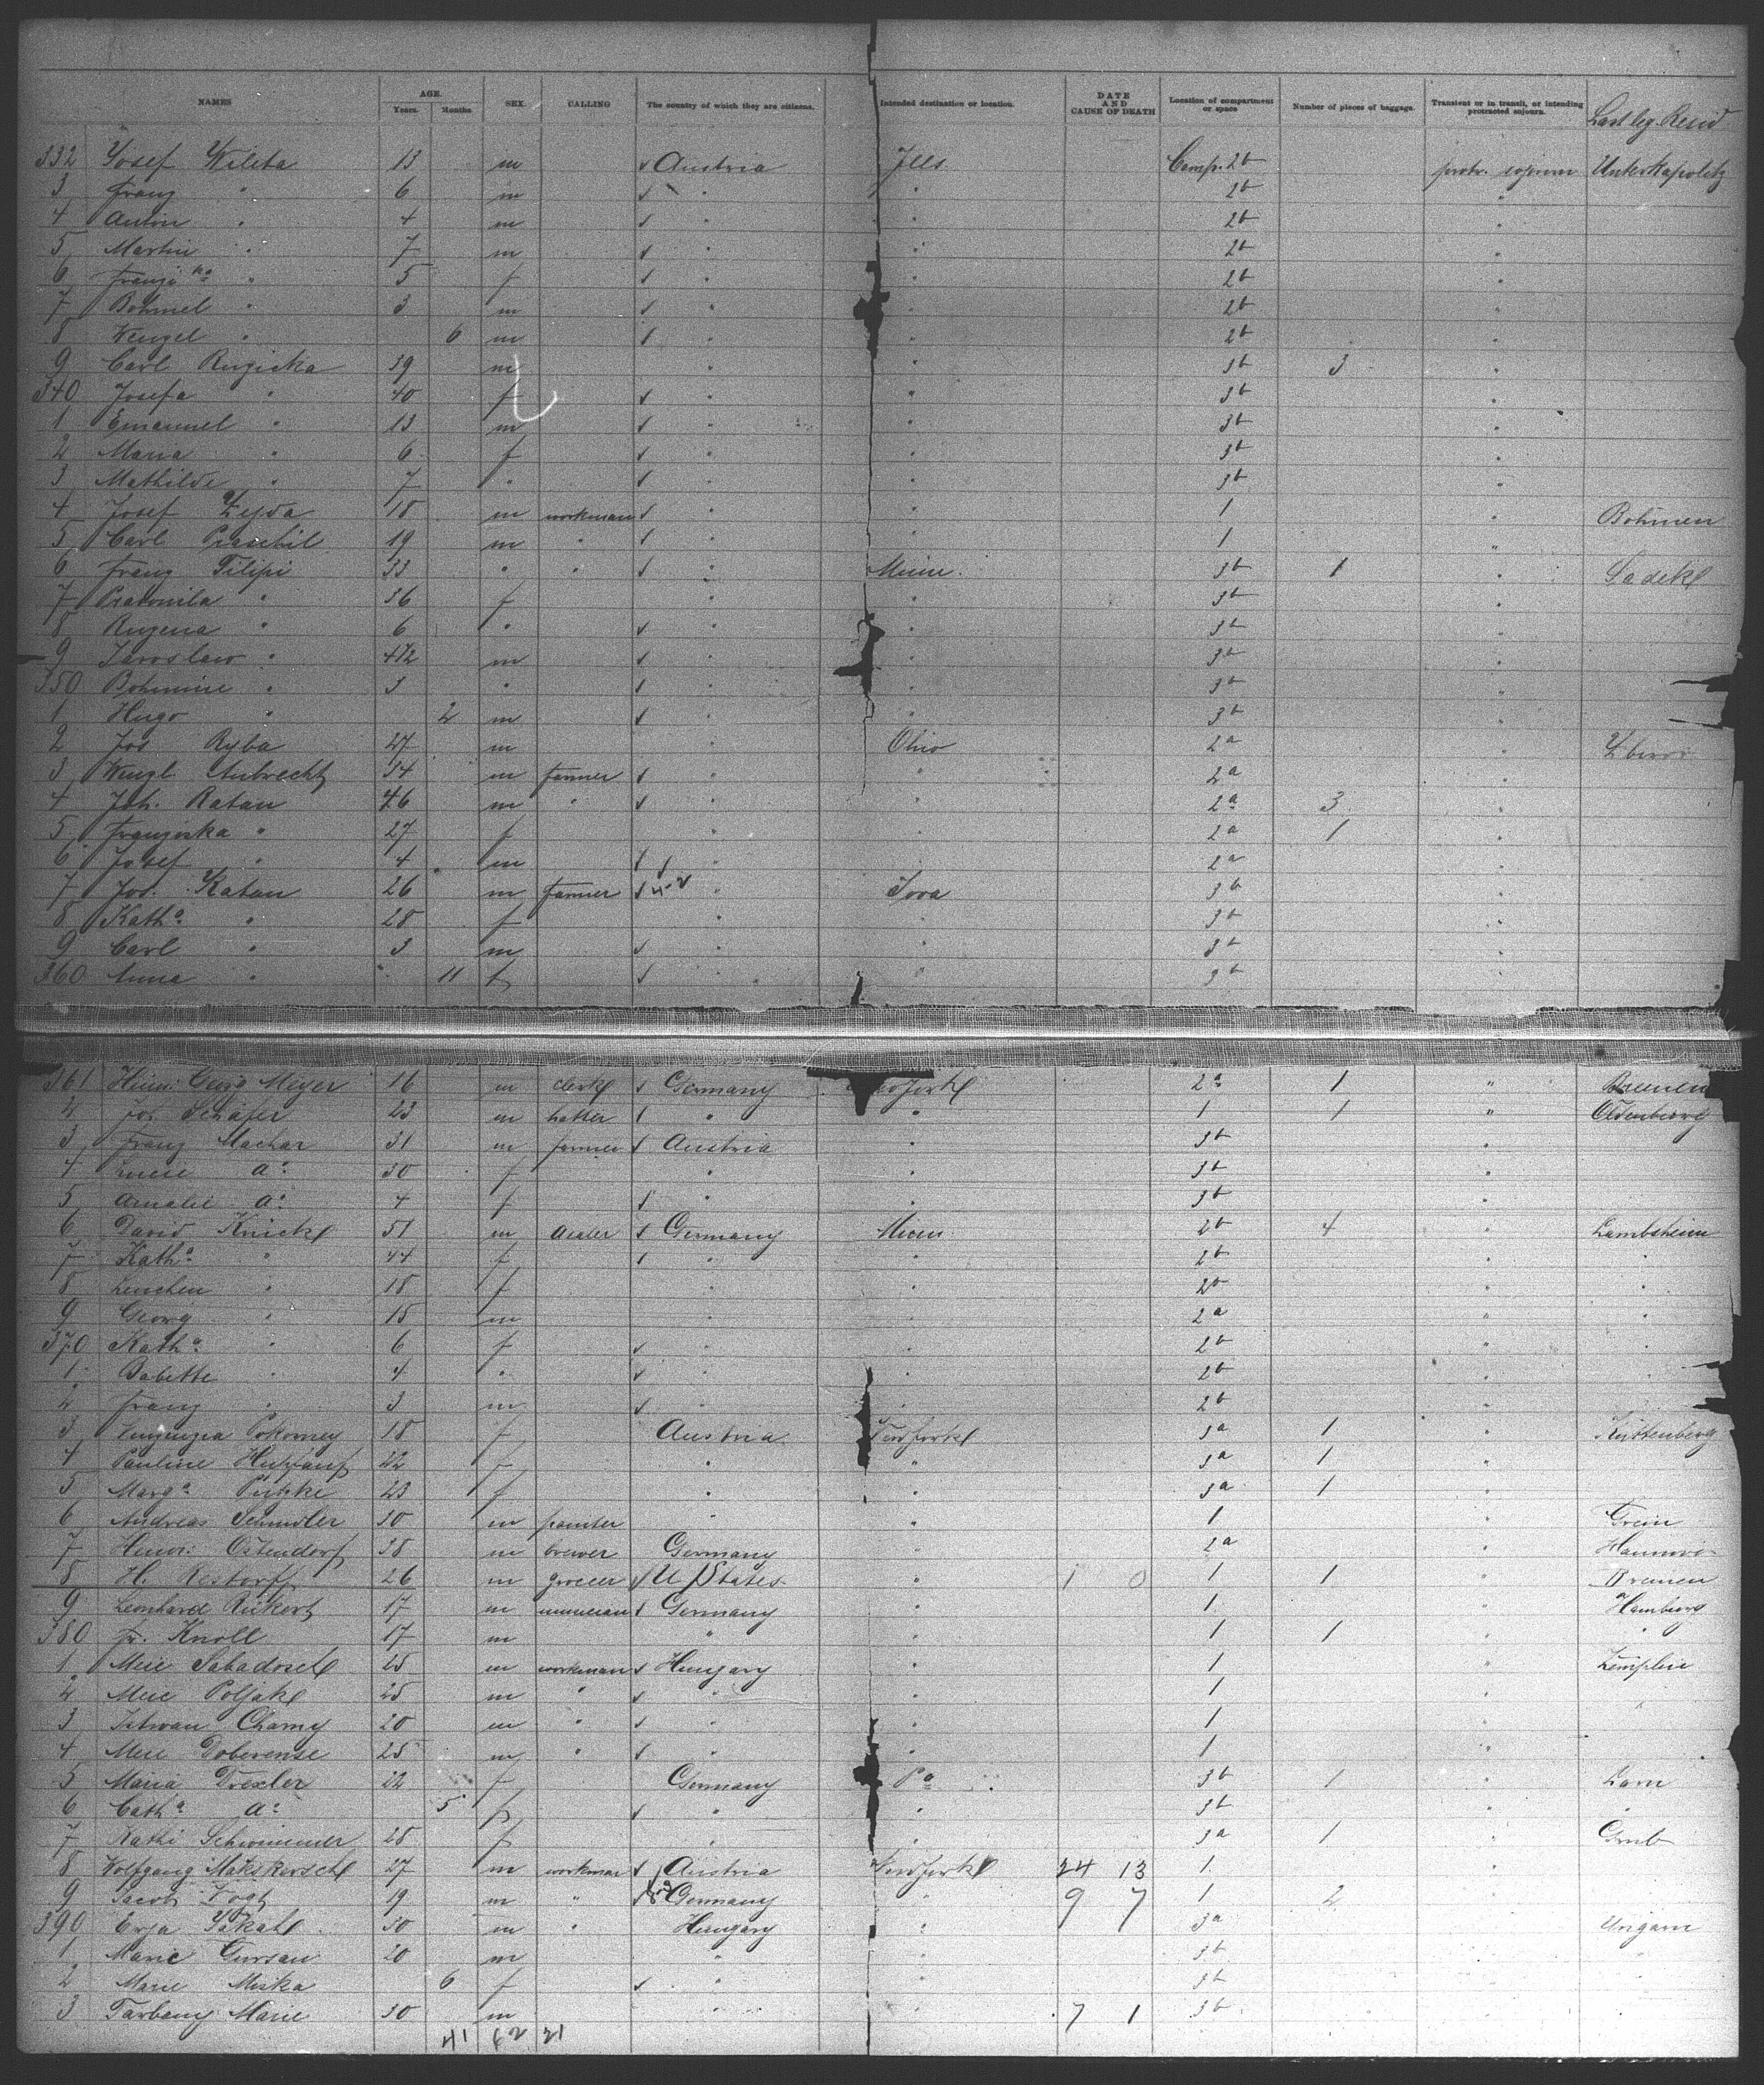 NAMES AGE. Years. Months SEX. CALLING The country of which they are citizens. Intended destination or location. DATE AND CAUSE OF DEATH Location of compartment or space Number of pieces of baggage. Transient or in transit, or intending protracted sojourn. Last leg. Resid
332 Josef Wilita 13 m Austria Ills. Comp. 2b protr. sojourn
3 Franz " 6 m " " 2b "
4 Anton " 4 m " " 2b "
5 Martin " 7 m " " 2b "
6 Franziska " 5 f " " 2b "
7 Bohmel " 3 m " " 2b "
8 Wenzel " 6 m " " 2b "
9 Carl Ruzicka 39 m " " 3b 3 "
340 Josefa " 40 f " " 3b "
1 Emanuel " 13 m " " 3b "
2 Maria " 6 f " " 3b "
3 Mathilde " 7 " " " 3b "
4 Josef 18 m workman " " 1 " Bohmen
5 Carl 19 m " " " 1 "
6 Franz Filipi 33 " " " Minn. 3b 1 " Sadek
7 " 36 f " " 3b "
8 Ruzena " 6 " " " 3b "
9 Jaroslaw " 4 1/2 m " " 3b "
350 Bohumir " 3 " " " 3b "
1 Hugo " 2 m " " 3b "
2 Jos Ryba 27 m " Ohio 2a "
3 Wenzl Aubrecht 34 m farmer " " 2a "
4 Joh. Ratan 46 m " " " 2a 3 "
5 Franziska " 27 f " " 2a 1 "
6 Josef " 4 m " " 2a "
7 Jos. Katan 26 m farmer 4-2 " Iova 3b "
8 Katha " 28 f " " 3b "
9 Carl " 3 m " " 3b "
360 Anna " 11 f " " 3b "
361 Georg Meyer 16 m clerk Germany 2a 1 " Bremen
2 Jos. Schäfer 23 m hatter " " 1 1 " Oldenburg
3 Franz Machar 31 m farmer Austria " 3b "
4 30 f " " 3b "
5 Amalie 4 f " " 3b "
6 David Knickl 51 m dealer Germany Minn 2b 4 " Lambsheim
7 Katha " 44 f " " 2b " "
8 Lenchen " 18 f " " 2b " "
9 Georg " 15 m " " 2a " "
370 Katha " 6 f " " 2b " "
1 Babette " 4 " " " 2b " "
2 Franz " 3 m " " 2b " "
3 Vinzenzia Pokorney 18 f Austria 3a 1 " Kuttenberg
4 Pauline 22 f " " 3a 1 "
5 Marga 23 f " " 3a 1 "
6 Andreas Schindler 30 m painter " " 1 " Grein
7 Heinr. Ostendorf 38 m brewer Germany " 2a " Hannover
8 H. Restorf 26 m grocer U States " 1 0 1 1 " Bremen
9 Leonhard Rickert 17 m musician Germany " 1 " Hamburg
380 Fr. Knoll 17 m " " 1 1 " "
1 Sabadosch 25 m workman Hungary " 1 " Zemplin
2 Poljak 25 m " " " 1 " "
3 Istwan Charny 20 m " " " 1 "
4 Doberense 25 m " " " 1 "
5 Maria Drexler 22 f Germany Pa 3b 1 "
6 Catha 5 f " " 3b " "
7 Kathi Schwimmer 28 f " " 3a 1 " Grub
8 Wolfgang 27 m workman Austria 24 13 1
9 Jacob Vogt 19 m " Germany " 9 7 1 2
390 30 m " Hungary " 3a Ungarn
1 Marie 20 m " " 3b
2 Marie Miska 6 f " " 3b
3 Marie 30 m " " 7 1 3b
41 62 21